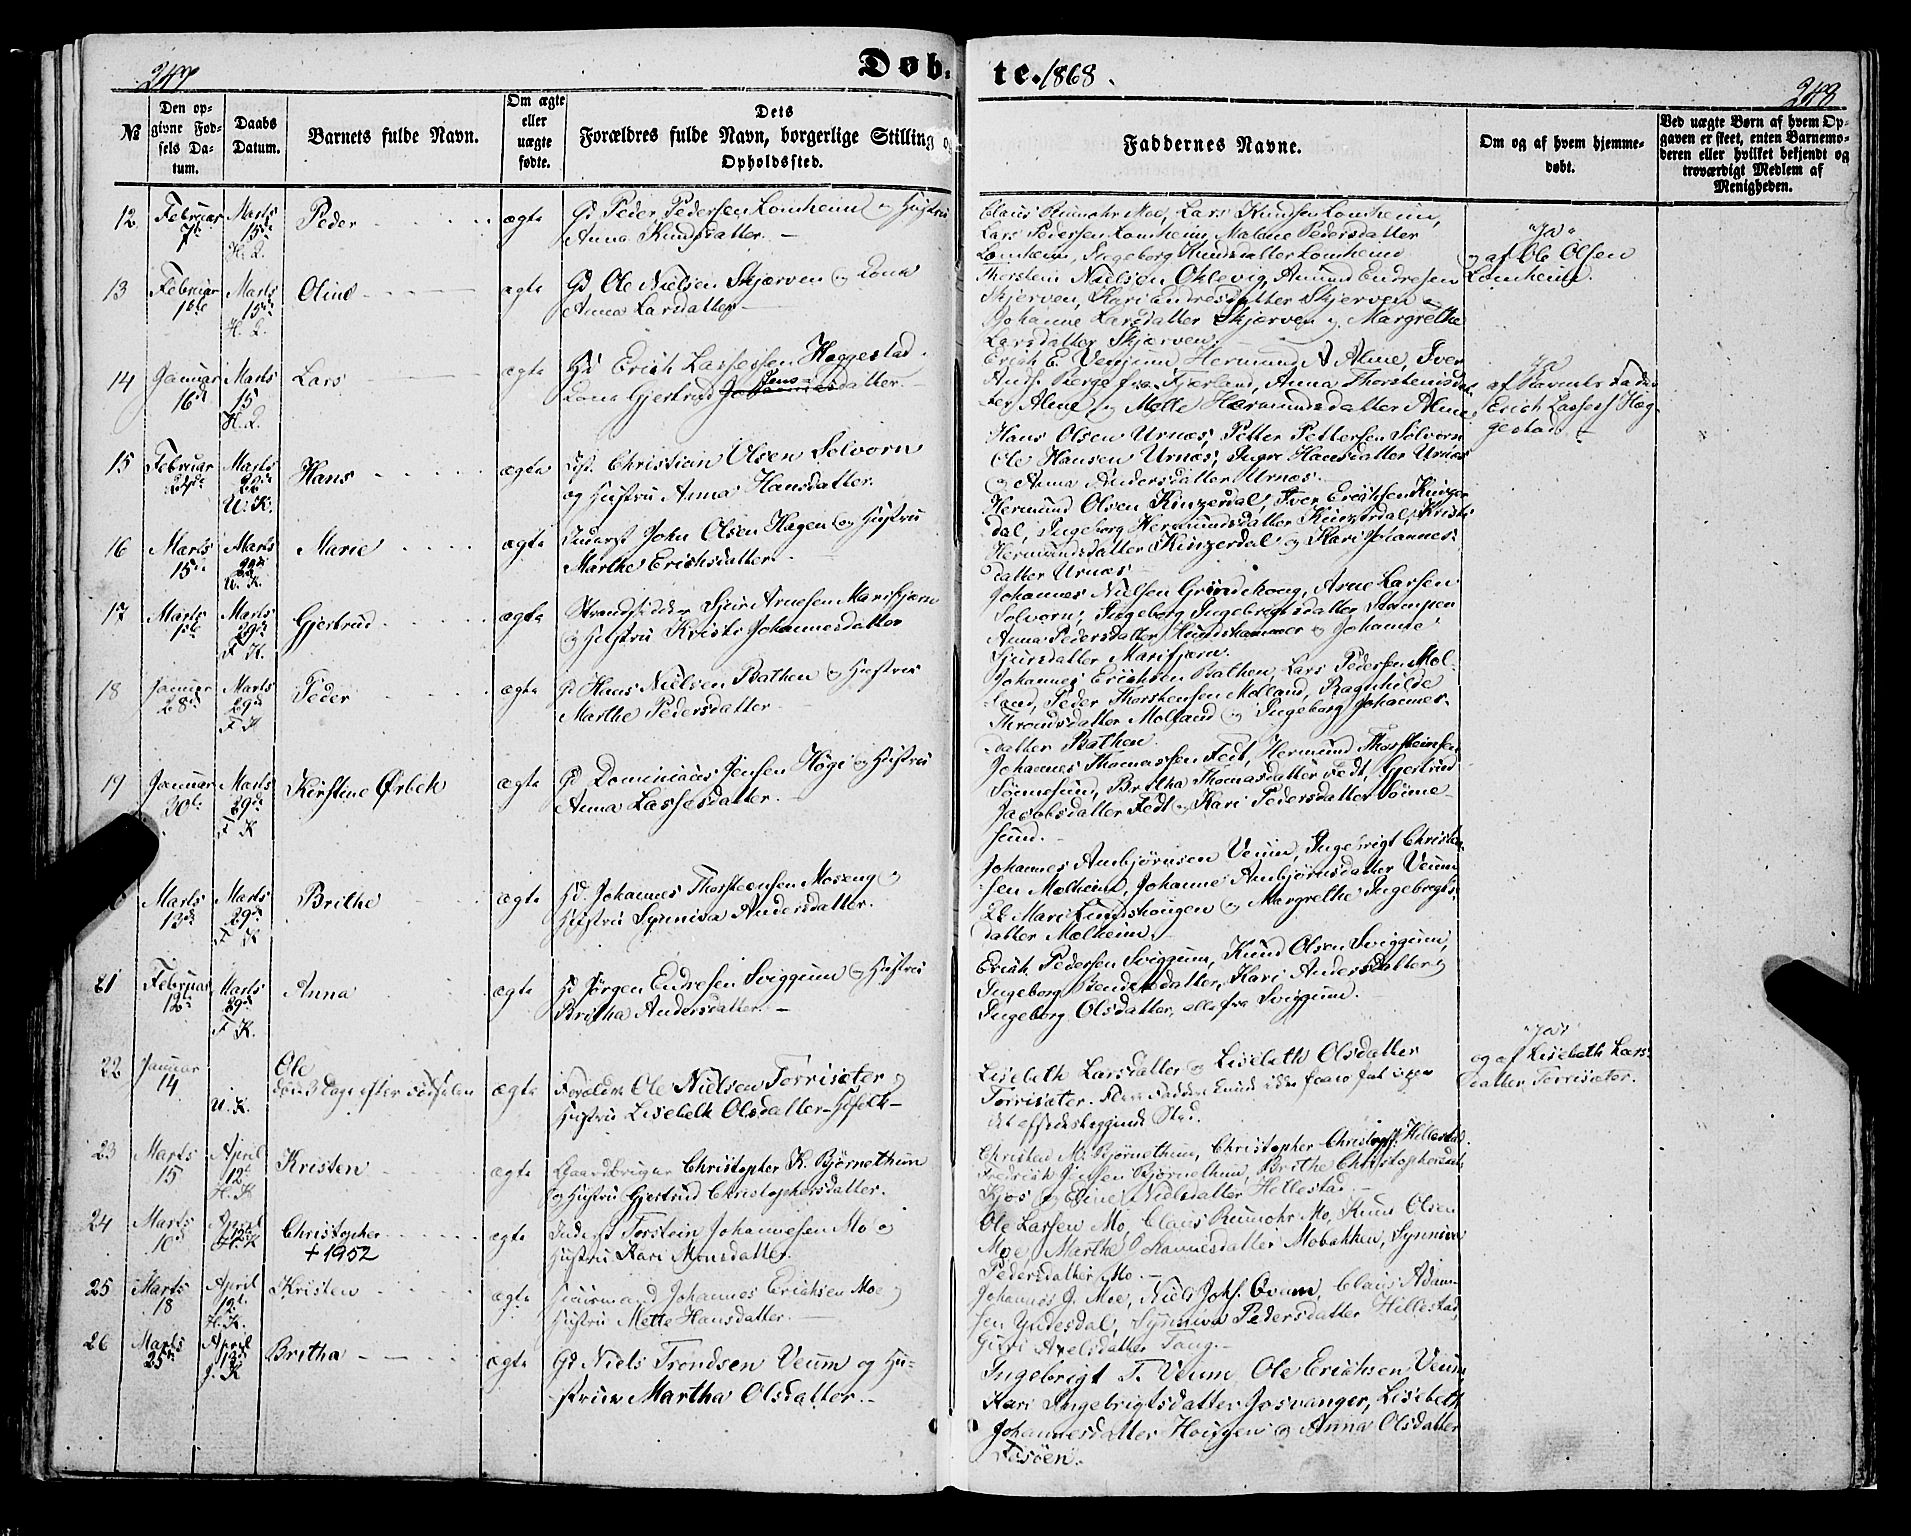 247
Døb-
te. 1868.
248
№
Den op-
givne Fød-
sels Da-
tum.
Daabs
Datum.
Barnets fulde Navn.
Om ægte
eller
uægte
fødte.
Dets
Forældres fulde Navn, borgerlige Stilling og
Opholdssted.
Faddernes Navne.
Om og af hvem hjemme-
døbt.
Ved uægte Børn af hvem Op-
gaven er skeet, enten Barnemo-
deren eller hvilket bekjendt og
troværdigt Medlem af
Menigheden.
12
Februar
7de
Marts
15de
H. L.
Peder
ægte
Gd Peder Pedersen Lomheim og Hustru
Anna Knudsdatter.
Claus Rumohr Moe, Lars Knudsen Lomheim,
Lars Pedersen Lomheim, Malene Pedersdatter
Lomheim, Ingeborg Knudsdatter Lomheim
"Ja"
og af Ole Olsen
Lomheim.
13
Februar
16de
Marts
15de
H. L.
Oline
ægte
Gd Ole Nielsen Skjærven og Kone
Anna Larsdatter
Thorstein Nielsen Ohlevig, Amund Endresen
Skjerven, Kari Endresdatter Skjerven
Johanne Larsdatter Skjærven og Margrethe
Larsdatter Skjærven.
14
Januar
16de
Marts
15
H. L.
Lars
ægte
Hd Erich Lassesen Haggestad
Kone Gjertrud Jensdatter.
Erich E. Venjum, Hermund A Alme, Iver
Berge fra Fjærland, Anna Thorsteinsdat-
ter Alme og Mette Hermundsdatter Alme
Ja
af Barnets Fader
Erich Lasses Hæg-
gestad.
15
Februar
Marts
22de
U. K.
Hans
ægte
Christian Olsen Solvorn
og Hustru Anna Hansdatter.
Hans Olsen Urnæs, Petter Pettersen Solvorn
Ole Hansen Urnæs, Ingre Hansdatter Urnæs
og Anna Andersdatter Urnæs.
16
Marts
15de
Marts
22de
U. K.
Marie
ægte
Inderst John Olsen Hagen og Hustru
Marthe Erichsdatter.
Hermund Olsen Kinzerdal, Iver Erichsen Kinzer-
dal, Ingeborg Hermundsdatter Kinzerdal, Kristi
Hermundsdatter Kinzerdal og Kari Johannes-
datter Urnæs
17
Marts
1ste
Marts
29de
F. K.
Gjertrud
ægte
Strandsidder Sjur Arnesen Marifjæren
og Hustru Kristi Johannesdatter
Johannes Nielsen Grindehoug, Arne Larsen
Solvorn, Ingeborg Ingebrigtsdatter Stompen
Anna Pedersdatter Hundshammer og Johanne
Sjursdatter Marifjæren.
18
Januar
28de
Marts
29de
F. K.
Peder
ægte
Gd Hans Nielsen Bathen og Hustru
Marthe Pedersdatter
Johannes Erichsen Bathen, Lars Pedersen Mol-
land, Peder Thorstensen Molland, Ragnhilde
Throndsdatter Molland og Ingeborg Johannes-
datter Bathen.
19
Januar
30te
Marts
29de
F. K.
Kirstine Ørbek
ægte
Gd Dominicus Jensen Høgi og Hustru
Anna Lassesdatter.
Johannes Thomassen Fedt, Hermund Thorsteinsen
Sørnesund, Britha Thomasdatter Fedt, Gjertrud
Jacobsdatter Fedt og Kari Pedersdatter Sørne-
sund.
Marts
13de
Marts
29de
F. K.
Brithe
ægte
Hd. Johannes Thorsteensen Moseng og
Hustru Synniva Andersdatter.
Johannes Anbjørnsen Veum, Ingebrigt Christen-
sen Molheim, Johanne Anbjørnsdatter Veum
Mari Lundshougen og Margrethe Ingebrigts-
datter Molheim.
21
Februar
12te
Marts
29de
F. K.
Anna
ægte
Hd Jørgen Endresen Sviggum og Hustru
Britha Andersdatter.
Erich Pedersen Sviggum, Knud Olsen Sviggum,
Ingeborg Bendiksdatter, Kari Andersdatter og
Ingeborg Olsdatter, alle fra Sviggum.
22
Januar
14
U. K.
Ole
døde 3 Dage efter Fødselen
ægte
Forældre Ole Nielsen Torrisæter og
Hustru Lisebeth Olsdatter
Lisebeth Larsdatter og Lisebeth Olsdatter
Torrisæter.
"Ja"
og af Lisebeth Lars-
datter Torrisæter.
23
Marts
15
April
12te
H. K.
Kristen
ægte
Gaardbruger Christopher K. Bjørnethun
og Hustru Gjertrud Christophersdatter.
Christad M. Bjørnethun, Christopher Christoph: Hillestad
Fredrich Jensen Bjørnethun, Brithe Christophersdat.
Kjos og Eline Nielsdatter Hillestad.
24
Marts
10de
April
12te
H. K.
Christopher
+ 1952
ægte
Inderst Torstein Johannesen Mo og
Hustru Kari Monsdatter.
Ole Larsen Mo, Claus Rumohr Mo, Knud Olsen
Moe, Marthe Johannesdatter Mobakken, Synniva
Pedersdatter Mo.
25
Marts
18
April
12te
H. K.
Kristen
ægte
Huusmand Johannes Erichsen Moe og
Hustru Mette Hansdatter.
Johannes J. Moe, Niels Johs. Ovum, Claus Adam-
sen Yndesdal, Synneva Pedersdatter Hillestad,
Guri Axelsdatter Fang.
26
Marts
25de
April
13de
J. K.
Britha
ægte
Gd Niels Trondsen Veum og Hu-
struw Martha Olsdatter.
Ingebrigt T. Veum, Ole Erichsen Veum
Kari Ingebrigtsdatter Josvanger, Lisebeth
Johannesdatter Houggen og Anna Olsdatter
Fosøen.